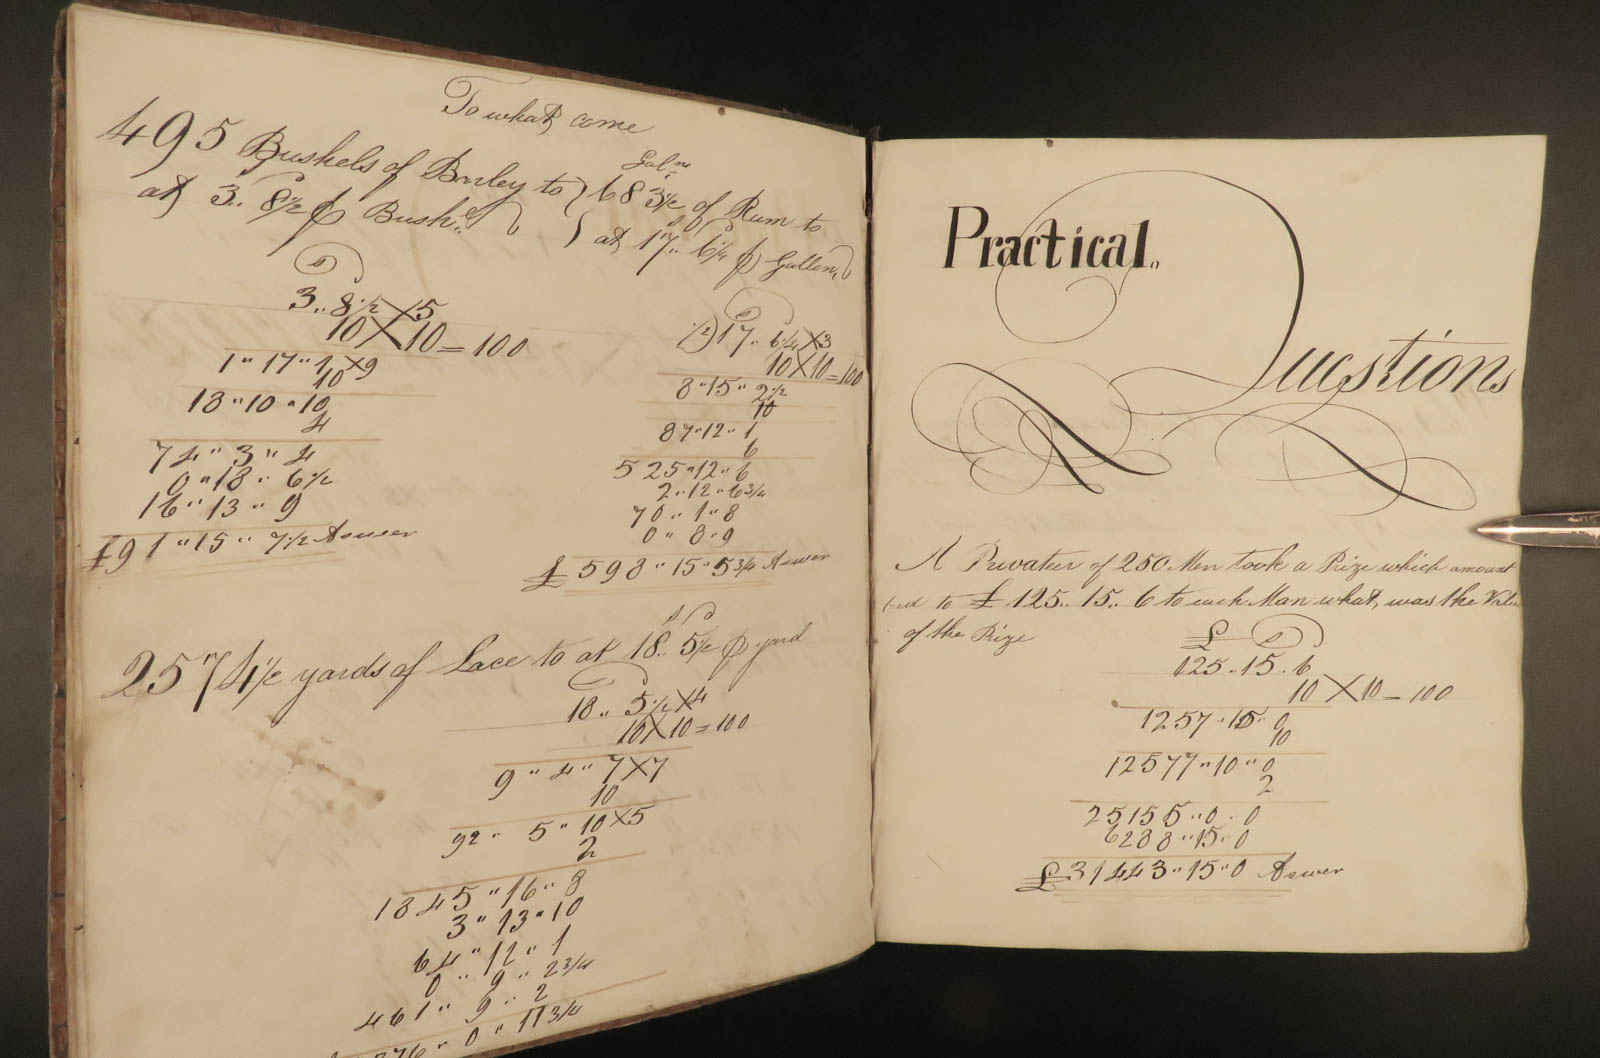 To what come
495 Bushels of Barley to
at 3.. 8 1/2 ₱ Bush.l
3.. 8 1/2 X 5
10 X 10 = 100
1 " 17 " 1 X 9
10
18 " 10 " 10
4
74 " 3 " 4
0 " 18 " 6 1/2
16 " 13 " 9
£ 91 " 15 " 7 1/2 Answer
Gal.ns
683 1/2 of Rum to
s d
at 17.. 6 1/4 ₱ Gallon
1/2) 17.. 6 1/4 X 3
10 X 10 = 100
8 " 15 " 2 1/2
10
87 " 12 " 1
6
525 " 12 " 6
2 " 12 " 6 3/4
70 " 1 " 8
0 " 8 " 9
£ 598 " 15 " 5 3/4 Answer
s d
2574 1/2 yards of Lace to at 18.. 5 1/2 ₱ yard
18.. 5 1/2 X 4
10 X 10 = 100
9 " 4 " 7 X 7
10
92 " 5 " 10 X 5
2
1845 " 16 " 8
3 " 13 " 10
64 " 12 " 1
0 " 9 " 2 3/4
461 " 9 " 2
376 " 0 " 11 3/4
Practical
Questions
A Privateer of 250 Men took a Prize which amount
ted to £ 125.. 15.. 6 to each Man what was the Value
of the Prize
£ s
125.. 15.. 6
10 X 10 = 100
1257 " 15 " 0
10
12577 " 10 " 0
2
25155 " 0 " 0
6288 " 15 " 0
£ 31443 " 15 " 0 Answer